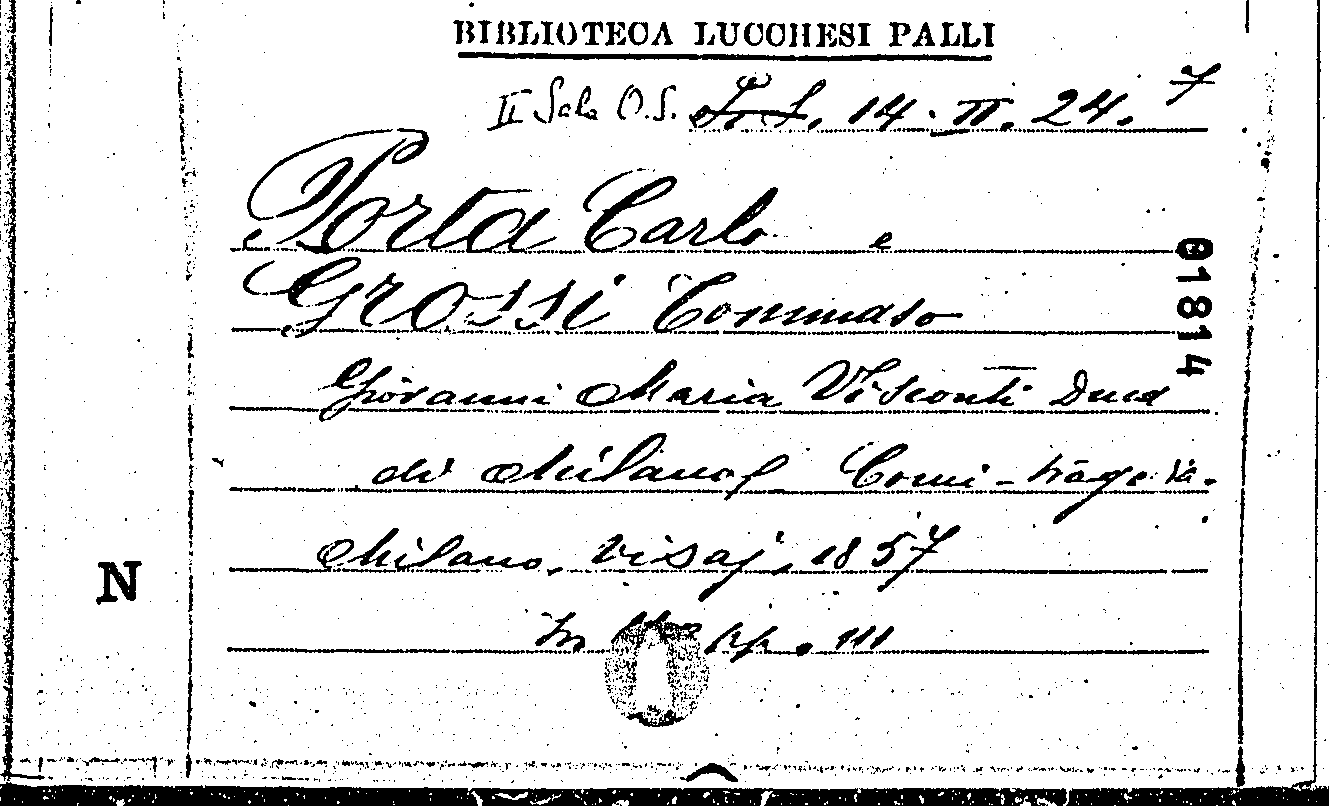 BIBLIOTECA LUCCHESI PALLI
II Sala O.S. 14. II. 24. 7
Porta Carlo e
Grossi Tommaso
01814
Giovanni Maria Visconti Duca
di Milano Comi-tragedia.
Milano, Visaj, 1857
N
In pp. 111